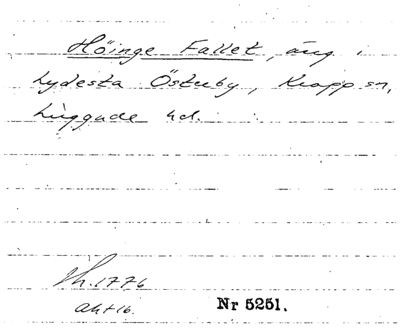 Höinge Fallet, äng i
Lydesta Östuby, Kropp sn,
Luggude hd.
Lh. 1776
akt 16.
Nr 5251.